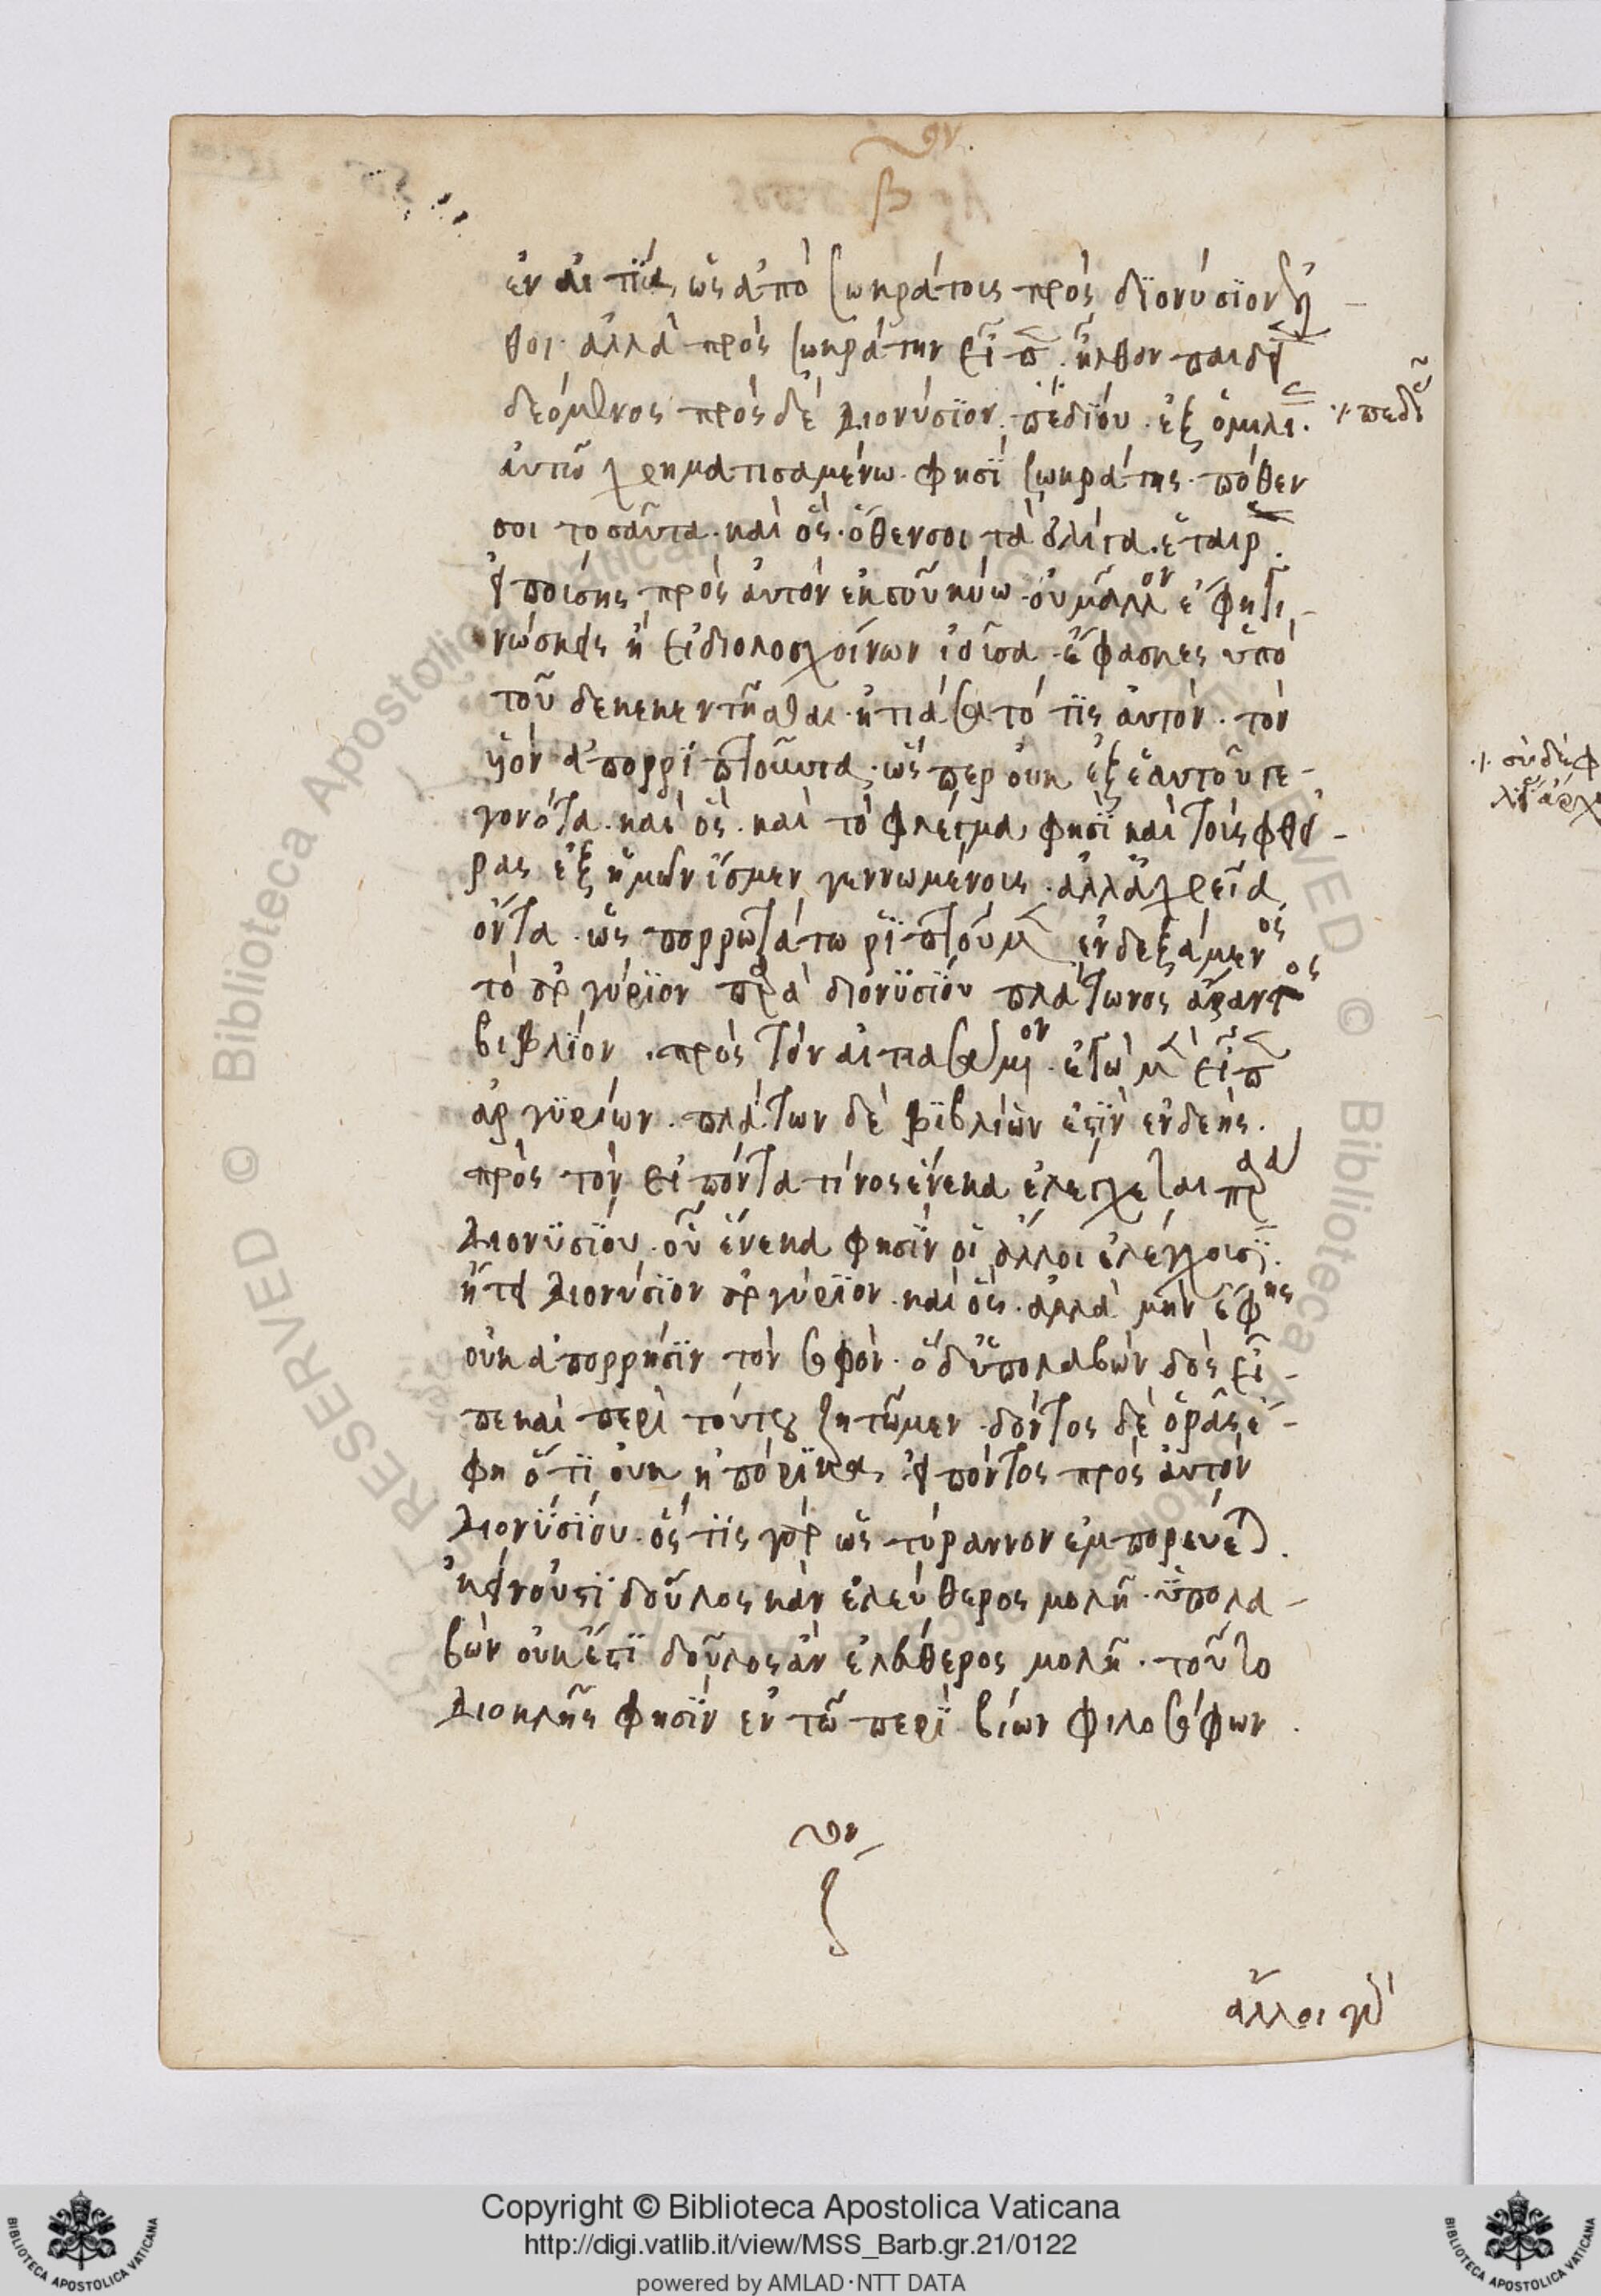 β
ἐν αἰτία, ὡς ἀπὸ σωκράτους πρὸς διονύσιον ἔλ-
θοι. ἀλλὰ πρὸς σωκράτην εἶπ. ἦλθον παιδεί
δεόμενος πρὸς δὲ Διονύσιον. πεδίου. ἐξ ὁμιλι.
αὐτῶ χρηματισαμένω. φησὶ σωκράτης. πόθεν
σοι τοσαῦτα. καὶ ὃς. ὅθεν σοι τὰ ὀλίγα. ἑταιρ.
εἰποίσης πρὸς αὐτὸν ἐκ σοῦ κύω. οὐ μᾶλλον ἔφη γι-
νώσκεις ἢ εἰ δι ὁλοσχοίνων ἰοῦσα. ἔφασκες ὑπὸ
τοῦ δε κεκεντῆσθαι. ἠτιάσατό τις αὐτὸν. τὸν
ὑὸν ἀπορρίπτουντα, ὥσπερ οὐκ ἐξ ἑαυτοῦ γε-
γονότα. καὶ ὃς. καὶ τὸ φλέγμα φησὶ καὶ τοὺς φθεί-
ρας ἐξ ἡμῶν ἴσμεν γεννωμένους. ἀλλ' ἀχρεῖα
ὄντα. ὡς πορρωτάτω ῥιπτοῦμ ἐνδεξάμενος
τὸ ἀργύριον παρὰ διονυσίου πλάτωνος ἄραντος
βιβλίον. πρὸς τὸν αἰτιασάμενον. ἐγὼ μ εἶπ
ἀργυρίων. πλάτων δὲ βιβλίων ἐστὶν ἐνδεὴς.
πρὸς τὸν εἰπόντα τίνος ἕνεκα ἐλέγχεται παρὰ
Διονυσίου. οὗ ἕνεκα φησὶν οἱ ἄλλοι ἐλέγχουσι.
ἤτει Διονύσιον ἀργύριον. καὶ ὃς. ἀλλὰ μὴν ἔφης
οὐκ ἀπορρήσιν τὸν σοφόν. ὁ δ' ὑπολαβὼν δὸς εἶ-
πε καὶ περὶ τούτου ζητῶμεν. δόντος δὲ ὁρᾶς ἔ-
φη ὅτι οὐκ ἠπόρηκα, εἰπόντος πρὸς αὐτὸν
Διονυσίου. ὅς τις γὰρ ὡς τύραννον ἐμπορεύεται.
κείνου ἐστι δοῦλος κἂν ἐλεύθερος μολῆ. ὑπολα-
βὼν οὐκ ἔστι δοῦλος ἂν ἐλεύθερος μολῆ. τοῦτο
Διοκλῆς φησὶν ἐν τῶ περὶ βίων φιλοσόφων.
ἄλλοι γὰρ
Copyright © Biblioteca Apostolica Vaticana
http://digi.vatlib.it/view/MSS_Barb.gr.21/0122
powered by AMLAD·NTT DATA